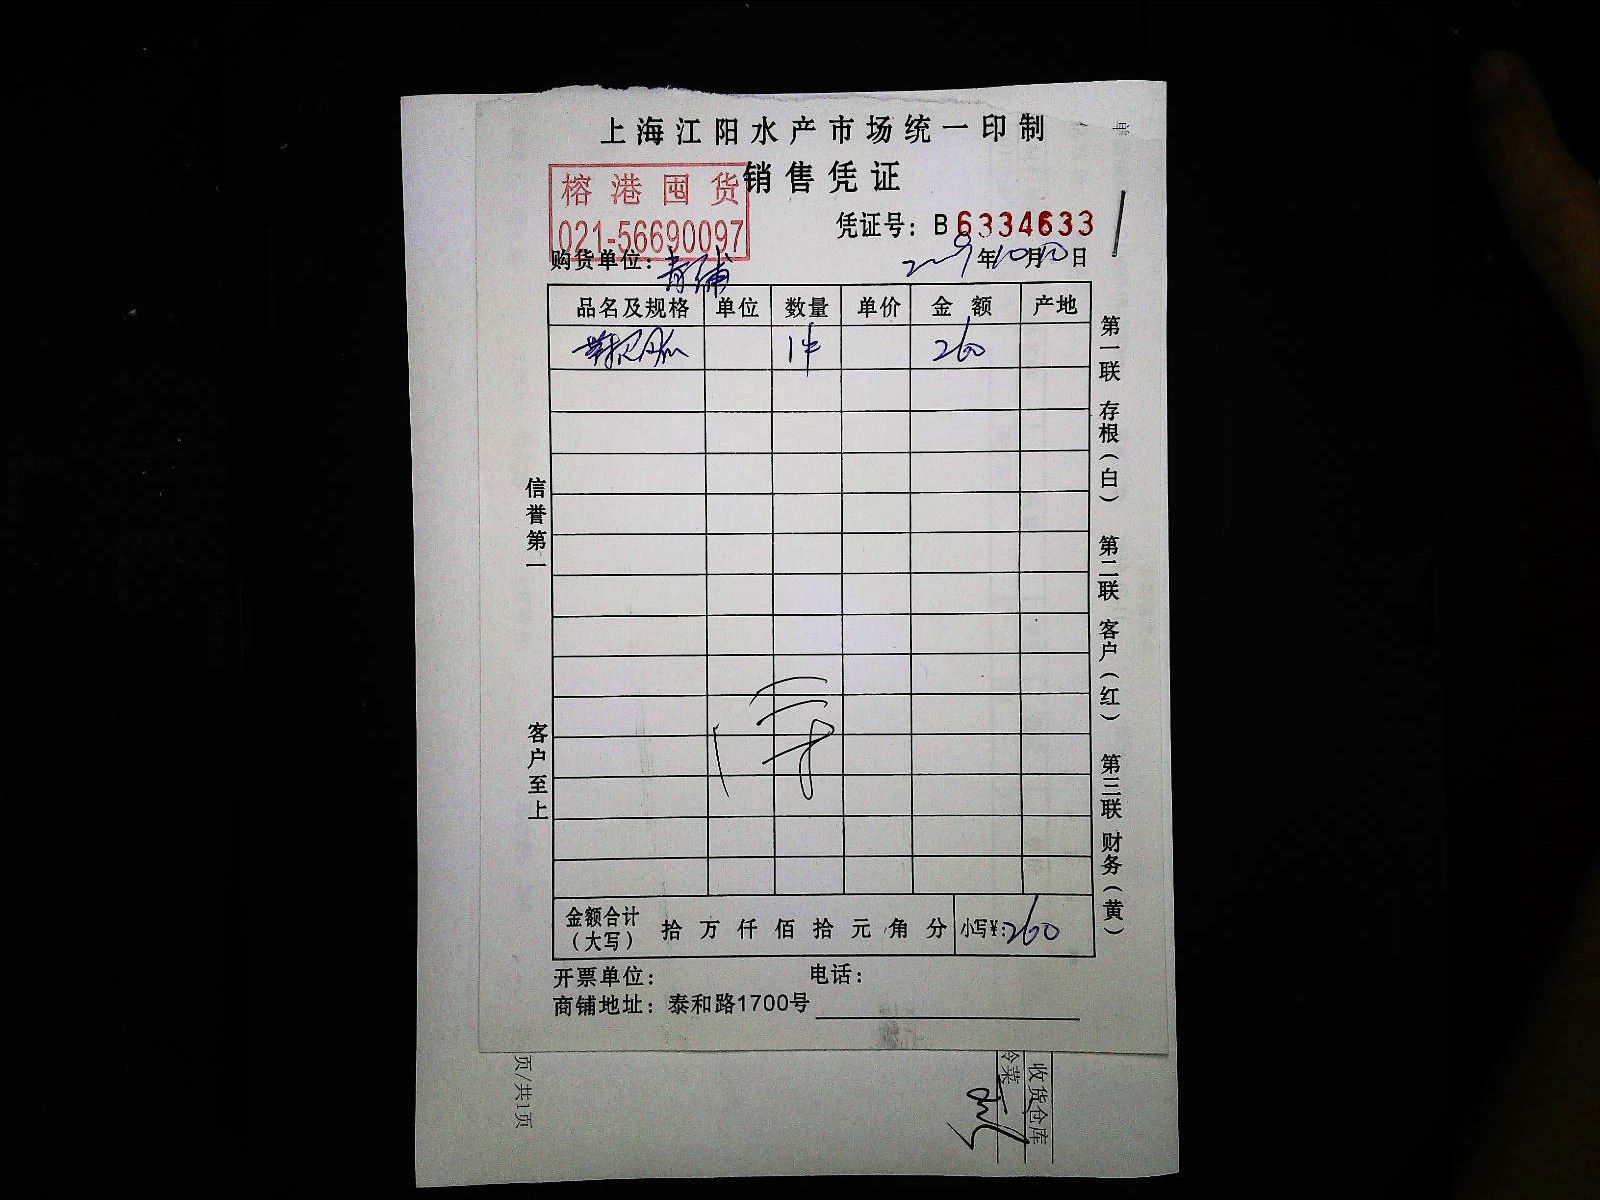 上海江阳水产市场统一印制
销售凭证
榕港囤货
021-56690097
凭证号：B6334633
购货单位：青浦
2009年10月10日
品名及规格 单位 数量 单价 金额 产地
1件 260
信誉第一
客户至上
第一联 存根（白） 第二联 客户（红） 第三联 财务（黄）
金额合计（大写） 拾 万 仟 佰 拾 元 角 分 小写¥:260
开票单位： 电话：
商铺地址：泰和路1700号
页/共1页
冷菜
收货仓库